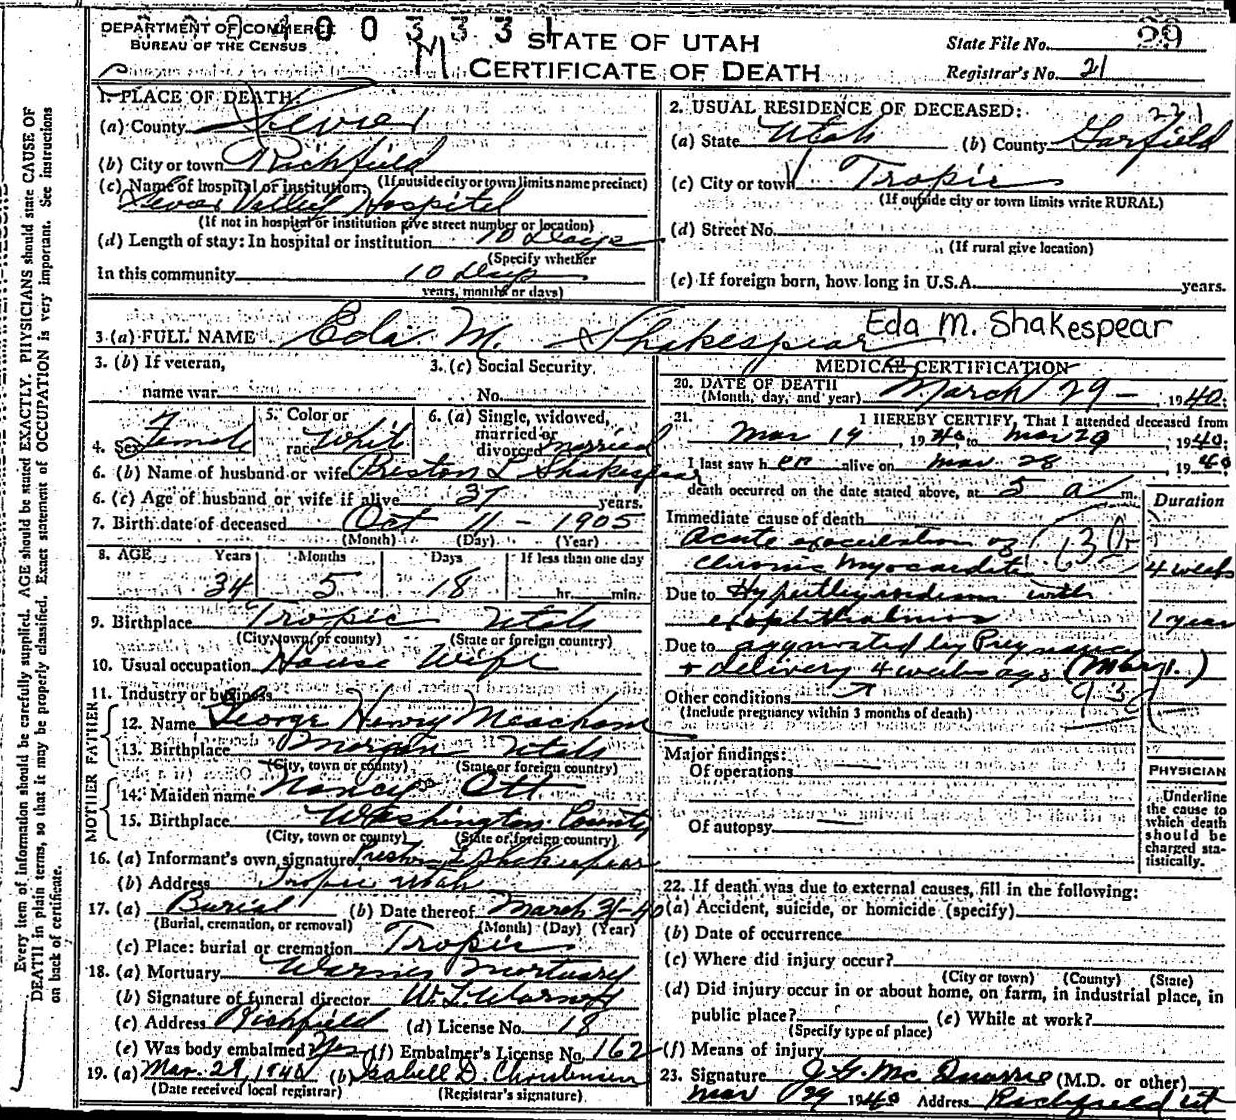 DEPARTMENT OF COMMERCE
BUREAU OF THE CENSUS
0 0 3 3 3 1
STATE OF UTAH
CERTIFICATE OF DEATH
State File No. 29
Registrar's No. 21
1. PLACE OF DEATH:
(a) County Sevier
(b) City or town Richfield
(c) Name of hospital or institution: (If outside city or town limits name precinct)
Sevier Valley Hospital
(If not in hospital or institution give street number or location)
(d) Length of stay: In hospital or institution 10 Days
(Specify whether
In this community 10 days
years, months or days)
2. USUAL RESIDENCE OF DECEASED:
221
(a) State Utah (b) County Garfield
(c) City or town Tropic
(If outside city or town limits write RURAL)
(d) Street No.
(If rural give location)
(e) If foreign born, how long in U.S.A. years.
3 (a) FULL NAME Eda M. Shakespear Eda M. Shakespear
3. (b) If veteran,
name war
3. (c) Social Security
No.
4. Sex Female
5. Color or
race Whit
6. (a) Single, widowed,
married or
divorced married
6. (b) Name of husband or wife Preston L Shakespear
6. (c) Age of husband or wife if alive 37 years.
7. Birth date of deceased Oct 11 - 1905
(Month) (Day) (Year)
8. AGE Years Months Days If less than one day
34 5 18 hr. min.
9. Birthplace Tropic Utah
(City, town or county) (State or foreign country)
10. Usual occupation House Wife
11. Industry or business
FATHER
12. Name George Henry Meacham
13. Birthplace Morgan Utah
(City, town or county) (State or foreign country)
MOTHER
14. Maiden name Nancy Ott
15. Birthplace Washington County
(City, town or county) (State or foreign country)
16. (a) Informant's own signature Preston L Shakespear
(b) Address Tropic Utah
17. (a) Burial (b) Date thereof March 31-40
(Burial, cremation, or removal) (Month) (Day) (Year)
(c) Place: burial or cremation Tropic
18. (a) Mortuary Warner Mortuary
(b) Signature of funeral director W. L. Warner
(c) Address Richfield (d) License No. 18
(e) Was body embalmed? Yes (f) Embalmer's License No. 162
19. (a) Mar. 29, 1940 (b) Isabell D. Christensen
(Date received local registrar) (Registrar's signature)
MEDICAL CERTIFICATION
20. DATE OF DEATH
(Month, day, and year) March 29 - , 1940.
21. I HEREBY CERTIFY, That I attended deceased from
Mar 19 , 1940 to Mar 29 1940.
I last saw her alive on Mar. 28 , 1940
death occurred on the date stated above, at 5 a m.
Duration
Immediate cause of death
Acute exacerbation of
Chronic Myocarditis 4 weeks
Due to Hyperthyroidism with
exophthalmos 1 year
Due to aggravated by Pregnancy
+ delivery 4 weeks ago (Mar 1.)
Other conditions
(Include pregnancy within 3 months of death)
Major findings:
Of operations
Of autopsy
PHYSICIAN
Underline
the cause to
which death
should be
charged sta-
tistically.
22. If death was due to external causes, fill in the following:
(a) Accident, suicide, or homicide (specify)
(b) Date of occurrence
(c) Where did injury occur?
(City or town) (County) (State)
(d) Did injury occur in or about home, on farm, in industrial place, in
public place? (e) While at work?
(Specify type of place)
(f) Means of injury
23. Signature J. G. Mc Quarrie (M.D. or other)
Mar 29 1940 Address Richfield Ut
Every item of information should be carefully supplied. AGE should be stated EXACTLY. PHYSICIANS should state CAUSE OF
DEATH in plain terms, so that it may be properly classified. Exact statement of OCCUPATION is very important. See instructions
on back of certificate.